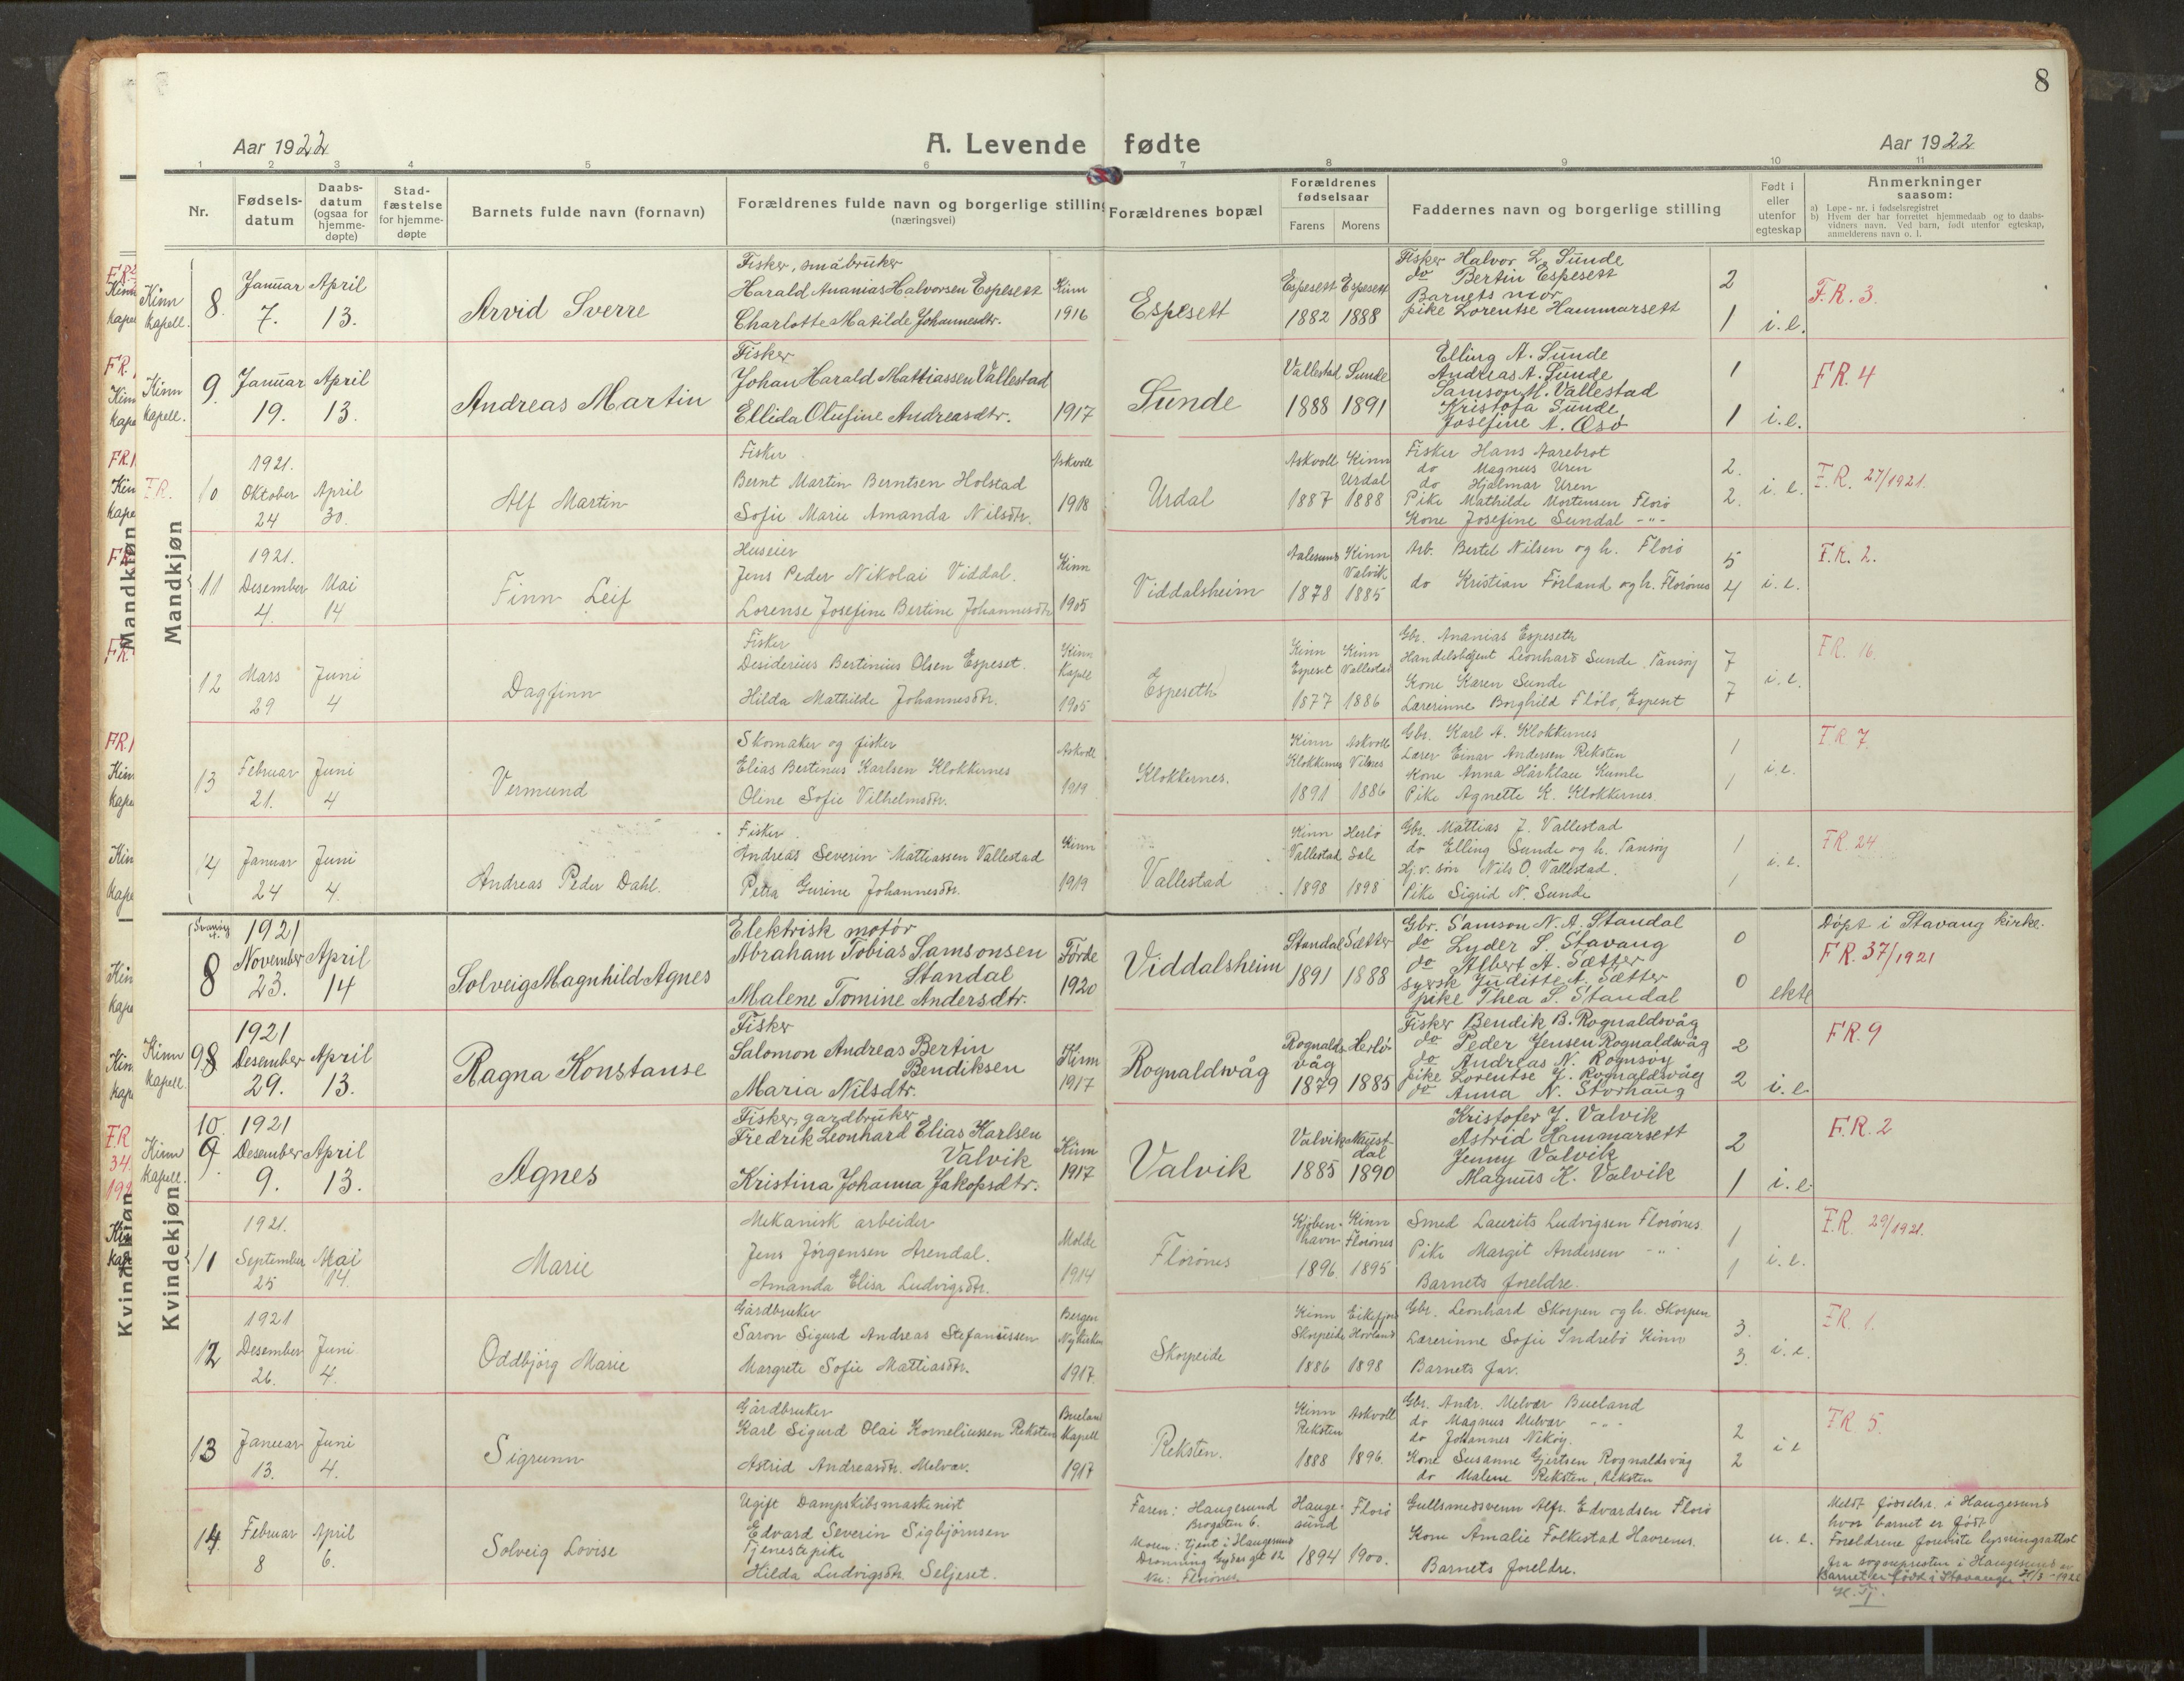 8
Aar 1922
A. Levende fødte
Aar 1922
1 2 3 4 5 6 7 8 9 10 11
Nr.
Fødsels-
datum
Daabs-
datum
(ogsaa for
hjemme-
døpte)
Stad-
fæstelse
for hjemme-
døpte
Barnets fulde navn (fornavn)
Forældrenes fulde navn og borgerlige stilling
(næringsvei)
Forældrenes bopæl
Forældrenes
fødselsaar
Farens Morens
Faddernes navn og borgerlige stilling
Født i
eller
utenfor
egteskap
Anmerkninger
saasom:
a) Løpe-nr. i fødselsregistret
b) Hvem der har forrettet hjemmedaab og to daabs-
vidners navn. Ved barn, født utenfor egteskap,
anmelderens navn o. l.
Mandkjøn
Kinn
Kapell.
8.
Januar
7.
April
13.
Arvid Sverre
Fisker, småbruker
Harald Ananias Halvorsen Espesett
Charlotte Matilde Johannesdtr.
Kinn
1916
Espesett
Espesett
1882
Espesett
1888
Fisker Halvor L. Sunde
do Bertin Espesett
Barnets mor
pike Lorentse Hammarsett
2
1
i. e.
F.R. 3.
Kinn
Kapell.
9.
Januar
19.
April
13.
Andreas Martin
Fisker
Johan Harald Mattiassen Vallestad
Ellida Olufine Andreasdtr.
1917
Sunde
Vallestad
1888
Sunde
1891
Elling A. Sunde
Andreas A. Sunde
Samson M. Vallestad
Kristofa Sunde
Josefine A. Osö
1
1
i. e.
F.R. 4
F.R.
10
1921.
Oktober
24
April
30.
Alf Martin
Fisker
Bernt Martin Berntsen Holstad
Sofie Marie Amanda Nilsdtr.
Askvoll
1918
Urdal
Askvoll
1887
Kinn
Urdal
1888
Fisker Hans Aarebrot
do Magnus Uren
do Hjalmar Uren
Pike Mathilde Mortensen Florö
Kone Josefine Sundal -"-
2.
2.
i. e.
F.R. 27/1921.
11
1921.
Desember
4.
Mai
14
Finn Leif
Huseier
Jens Peder Nikolai Viddal.
Lorense Josefine Bertine Johannesdtr.
Kinn
1905
Viddalsheim
Aalesund
1878
Kinn
Valvik
1885
Arb. Bertel Nilsen og h. Florö
do Kristian Förland og h. Florönes
5
4
i. e.
F.R. 2.
12
Mars
29
Juni
4
Dagfinn
Fisker
Desiderius Bertinius Olsen Espeset.
Hilda Mathilde Johannesdtr.
Kinn
Kapell
1905
Espeseth
Kinn
Espeset
1877
Kinn
Vallestad
1886
Gbr. Ananias Espeseth
Handelsbetjent Leonhard Sunde, Tansöy
Kone Karen Sunde
Lærerinne Borghild Flölo, Espeset
7
7
i. e.
F.R. 16.
13
Februar
21.
Juni
4
Vermund
Skomaker og fisker
Elias Bertinus Karlsen Klokkernes
Oline Sofie Vilhelmsdtr.
Askvoll
1919
Klokkernes.
Kinn
Klokkernes
1891
Askvoll
Vilnes
1886
Gbr. Karl A. Klokkernes
Lærer Einar Andersen Reksten
Kone Anna Hårklau Kumle
Pike Agnette K. Klokkernes.
1
1
i. e.
F.R. 7.
14
Januar
24
Juni
4.
Andreas Peder Dahl.
Fisker
Andreas Severin Mattiassen Vallestad
Petra Gurine Johannesdtr.
Kinn
1919
Vallestad
Kinn
Vallestad
1898
Herlö
Sæle
1898
Gbr. Mattias J. Vallestad
do Elling Sunde og h. Tansöy
Hj.v. sön Nils O. Vallestad.
Pike Sigrid N. Sunde
1
1
i. e.
F.R. 24
Kvindekjøn
8
1921
November
23.
April
14
Solveig Magnhild Agnes
Elektrisk motör
Abraham Tobias Samsonsen
Standal
Malene Tomine Andersdtr.
Förde
1920
Viddalsheim
Standal
1891
Sætter
1888
Gbr. Samson N. A. Standal
do Lyder S. Stavang
do Albert A. Sætter
sysk Juditte A. Sætter
pike Thea S. Standal
0
0
ekte
Döpt i Stavang kirke.
F.R. 37/1921
Kinn
Kapell.
9
1921
Desember
29.
April
13.
Ragna Konstanse
Fisker
Salomon Andreas Bertin
Bendiksen
Maria Nilsdtr.
Kinn
1917
Rognaldsvåg
Rognalds-
våg
1879
Herlö
1885
Fisker Bendik B. Rognaldsvåg
do Peder Jensen Rognaldsvåg
do Andreas N. Rognsöy
pike Lorentse J. Rognaldsvåg
do Anna N. Storhaug
2
2
i. e.
F.R. 9
Kinn
Kapell.
10
1921
Desember
9.
April
13.
Agnes
Fisker, gardbruker
Fredrik Leonhard Elias Karlsen
Valvik
Kristina Johanna Jakopsdtr.
Kinn
1917
Valvik
Valvik
1885
Naust-
dal
1890
Kristofer J. Valvik
Astrid Hammarsett
Jenny Valvik
Magnus K. Valvik
2
1
i. e.
F.R. 2
11
1921.
September
25
Mai
14.
Marie
Mekanisk arbeider
Jens Jörgensen Arendal.
Amanda Elisa Ludvigsdtr.
Molde
1914
Florönes
Kjöben-
havn
1896.
Kinn
Florönes
1895
Smed Laurits Ludvigsen Florönes.
Pike Margit Andersen -"-
Barnets foreldre.
1
1
i. e.
F.R. 29/1921.
12
1921
Desember
26.
Juni
4.
Oddbjörg Marie
Gårdbruker
Saron Sigurd Andreas Stefanussen
Margrete Sofie Mattiasdtr.
Bergen
Nykirken
1917.
Skorpeide
Kinn
Skorpeide
1886
Eikefjord
Hovland
1898
Gbr. Leonhard Skorpen og h. Skorpen
Lærerinne Sofie Indrebö Kinn
Barnets far.
3.
3.
i. e.
F.R. 1.
13
Januar
13.
Juni
4.
Sigrunn
Gårdbruker
Karl Sigurd Olai Korneliussen Reksten
Astrid Andreasdtr. Melvær.
Bueland
Kapell
1917
Reksten.
Kinn
Reksten
1888
Askvoll
1896.
Gbr. Andr. Melvær Bueland
do Magnus Melvær -"-
do Johannes Nekøy.
Kone Susanne Gjertsen Rognaldsvåg
do Malene Reksten, Reksten
2
2
i. e
F.R. 5.
14.
Februar
8
April
6.
Solveig Lovise
Ugift Dampskibsmaskinist
Edvard Severin Sigbjörnsen
Tjenestepike
Hilda Ludvigsdtr. Seljeset.
Faren: Haugesund
Brogaten 6.
Moren: tjent i Haugesund
Dronning Gydas gt 12
Nu: Florönes
Hauge-
sund
1894
Florö
1900.
Gullsmedsvenn Alfr. Edvardsen Florö
Kone Amalie Folkestad Havrenes.
Barnets foreldre.
u. e.
Meldt fødselsr. i Haugesund
hvor barnet er født
Foreldrene foreviste lysningsattest
fra sognepresten i Haugesund
Barnet er født i Stavanger